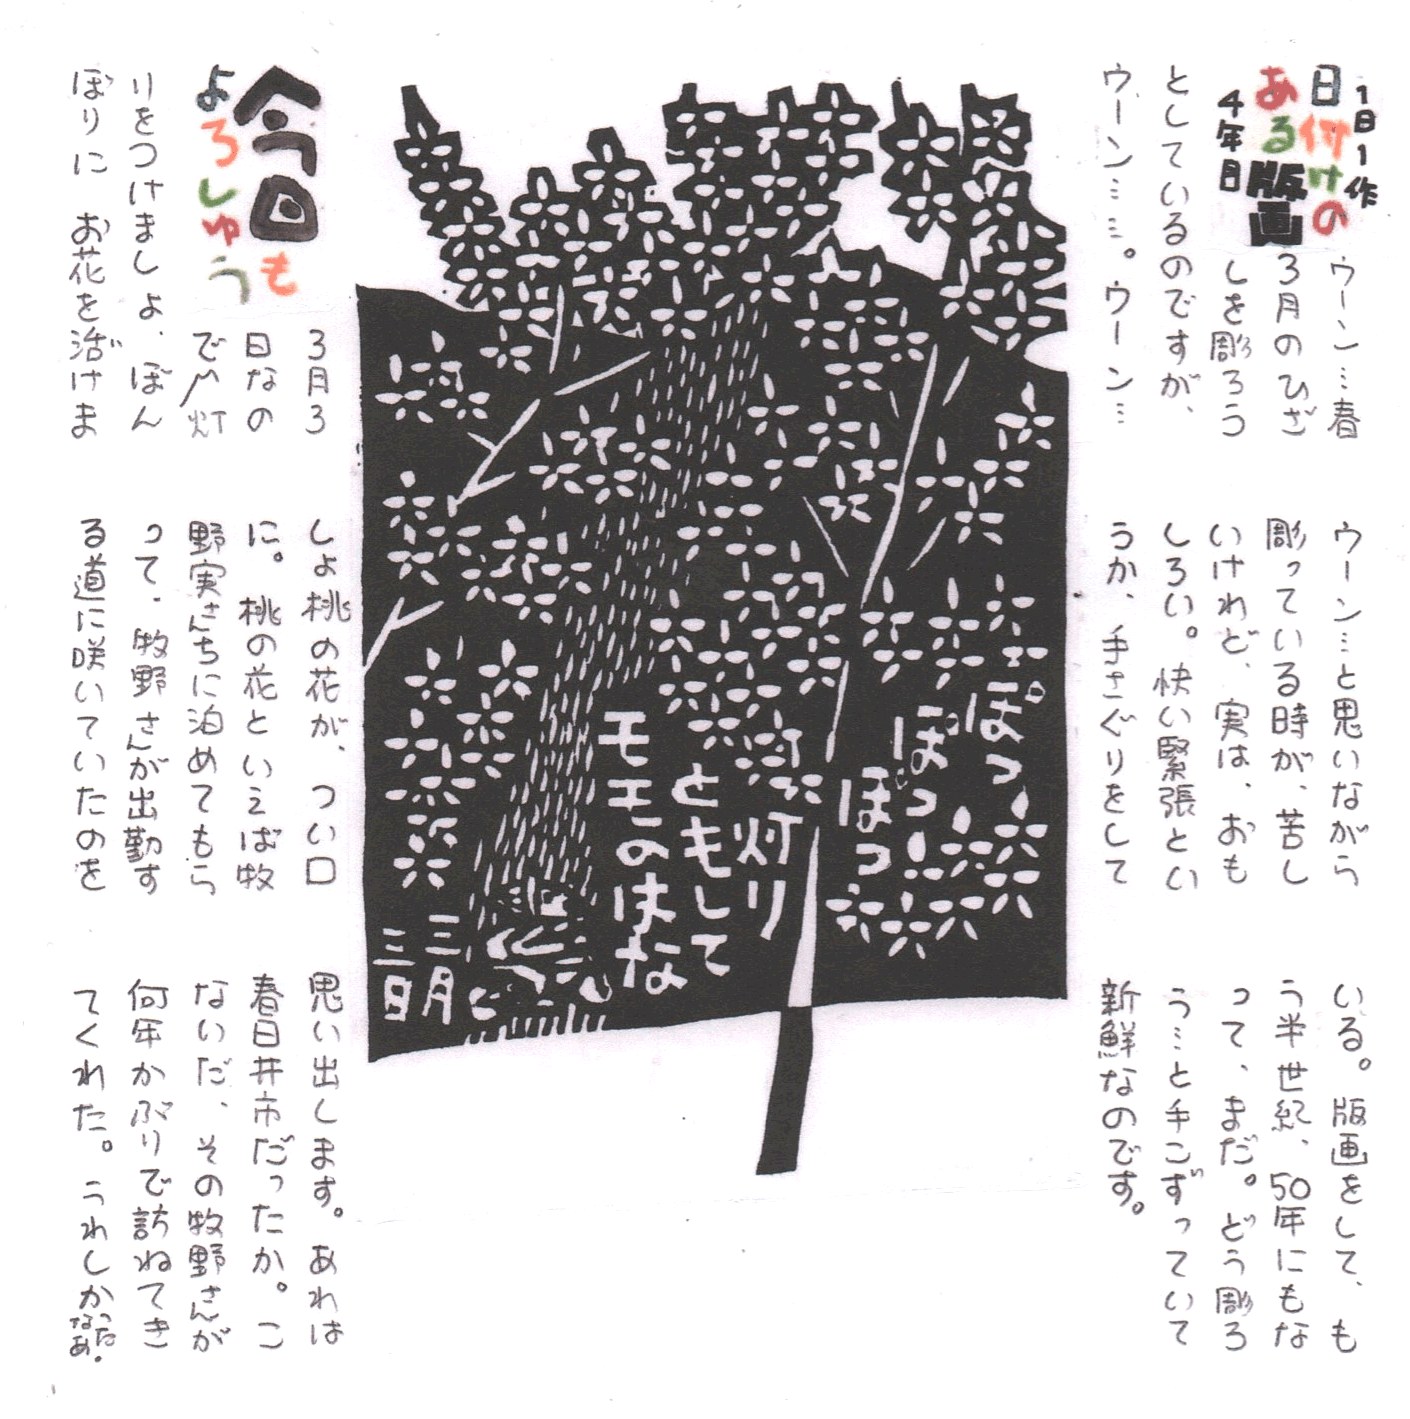 1日1作
日付けの
ある版画
4年目
ウーン…春
3月のひざ
しを彫ろう
としているのですが、
ウーン……。ウーン…
ウーン…と思いながら
彫っている時が、苦し
いけれど、実は、おも
しろい。快い緊張とい
うか、手さぐりをして
いる。版画をして、も
う半世紀、50年にもな
って、まだ。どう彫ろ
う…と手こずっていて
新鮮なのです。
ぽっ
ぽっ
ぽっ
灯り
ともして
モモのはな
三月
三日
今回も
よろしゅう
3月3
日なの
で〽灯
りをつけましょ、ぼん
ぼりに お花を活けま
しょ桃の花が、つい口
に。桃の花といえば牧
野実さんちに泊めてもら
って、牧野さんが出勤す
る道に咲いていたのを
思い出します。あれは
春日井市だったか。こ
ないだ、その牧野さんが
何年かぶりで訪ねてき
てくれた。うれしかったなあ。